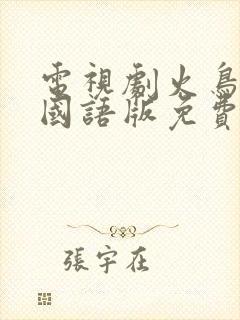 電視劇火鳥
國語版免費
張宇在